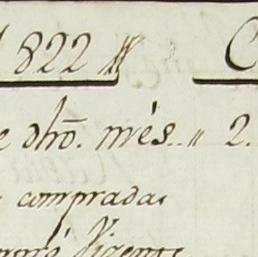 1822 C
e dhõ. més.. " 2.
compradas
Vicente